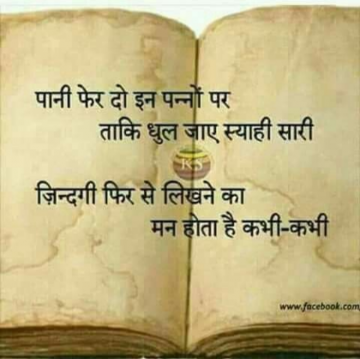 पानी फेर दो इन पन्नों पर
ताकि धुल जाए स्याही सारी
KS
ज़िन्दगी फिर से लिखने का
मन होता है कभी-कभी
www.facebook.com/